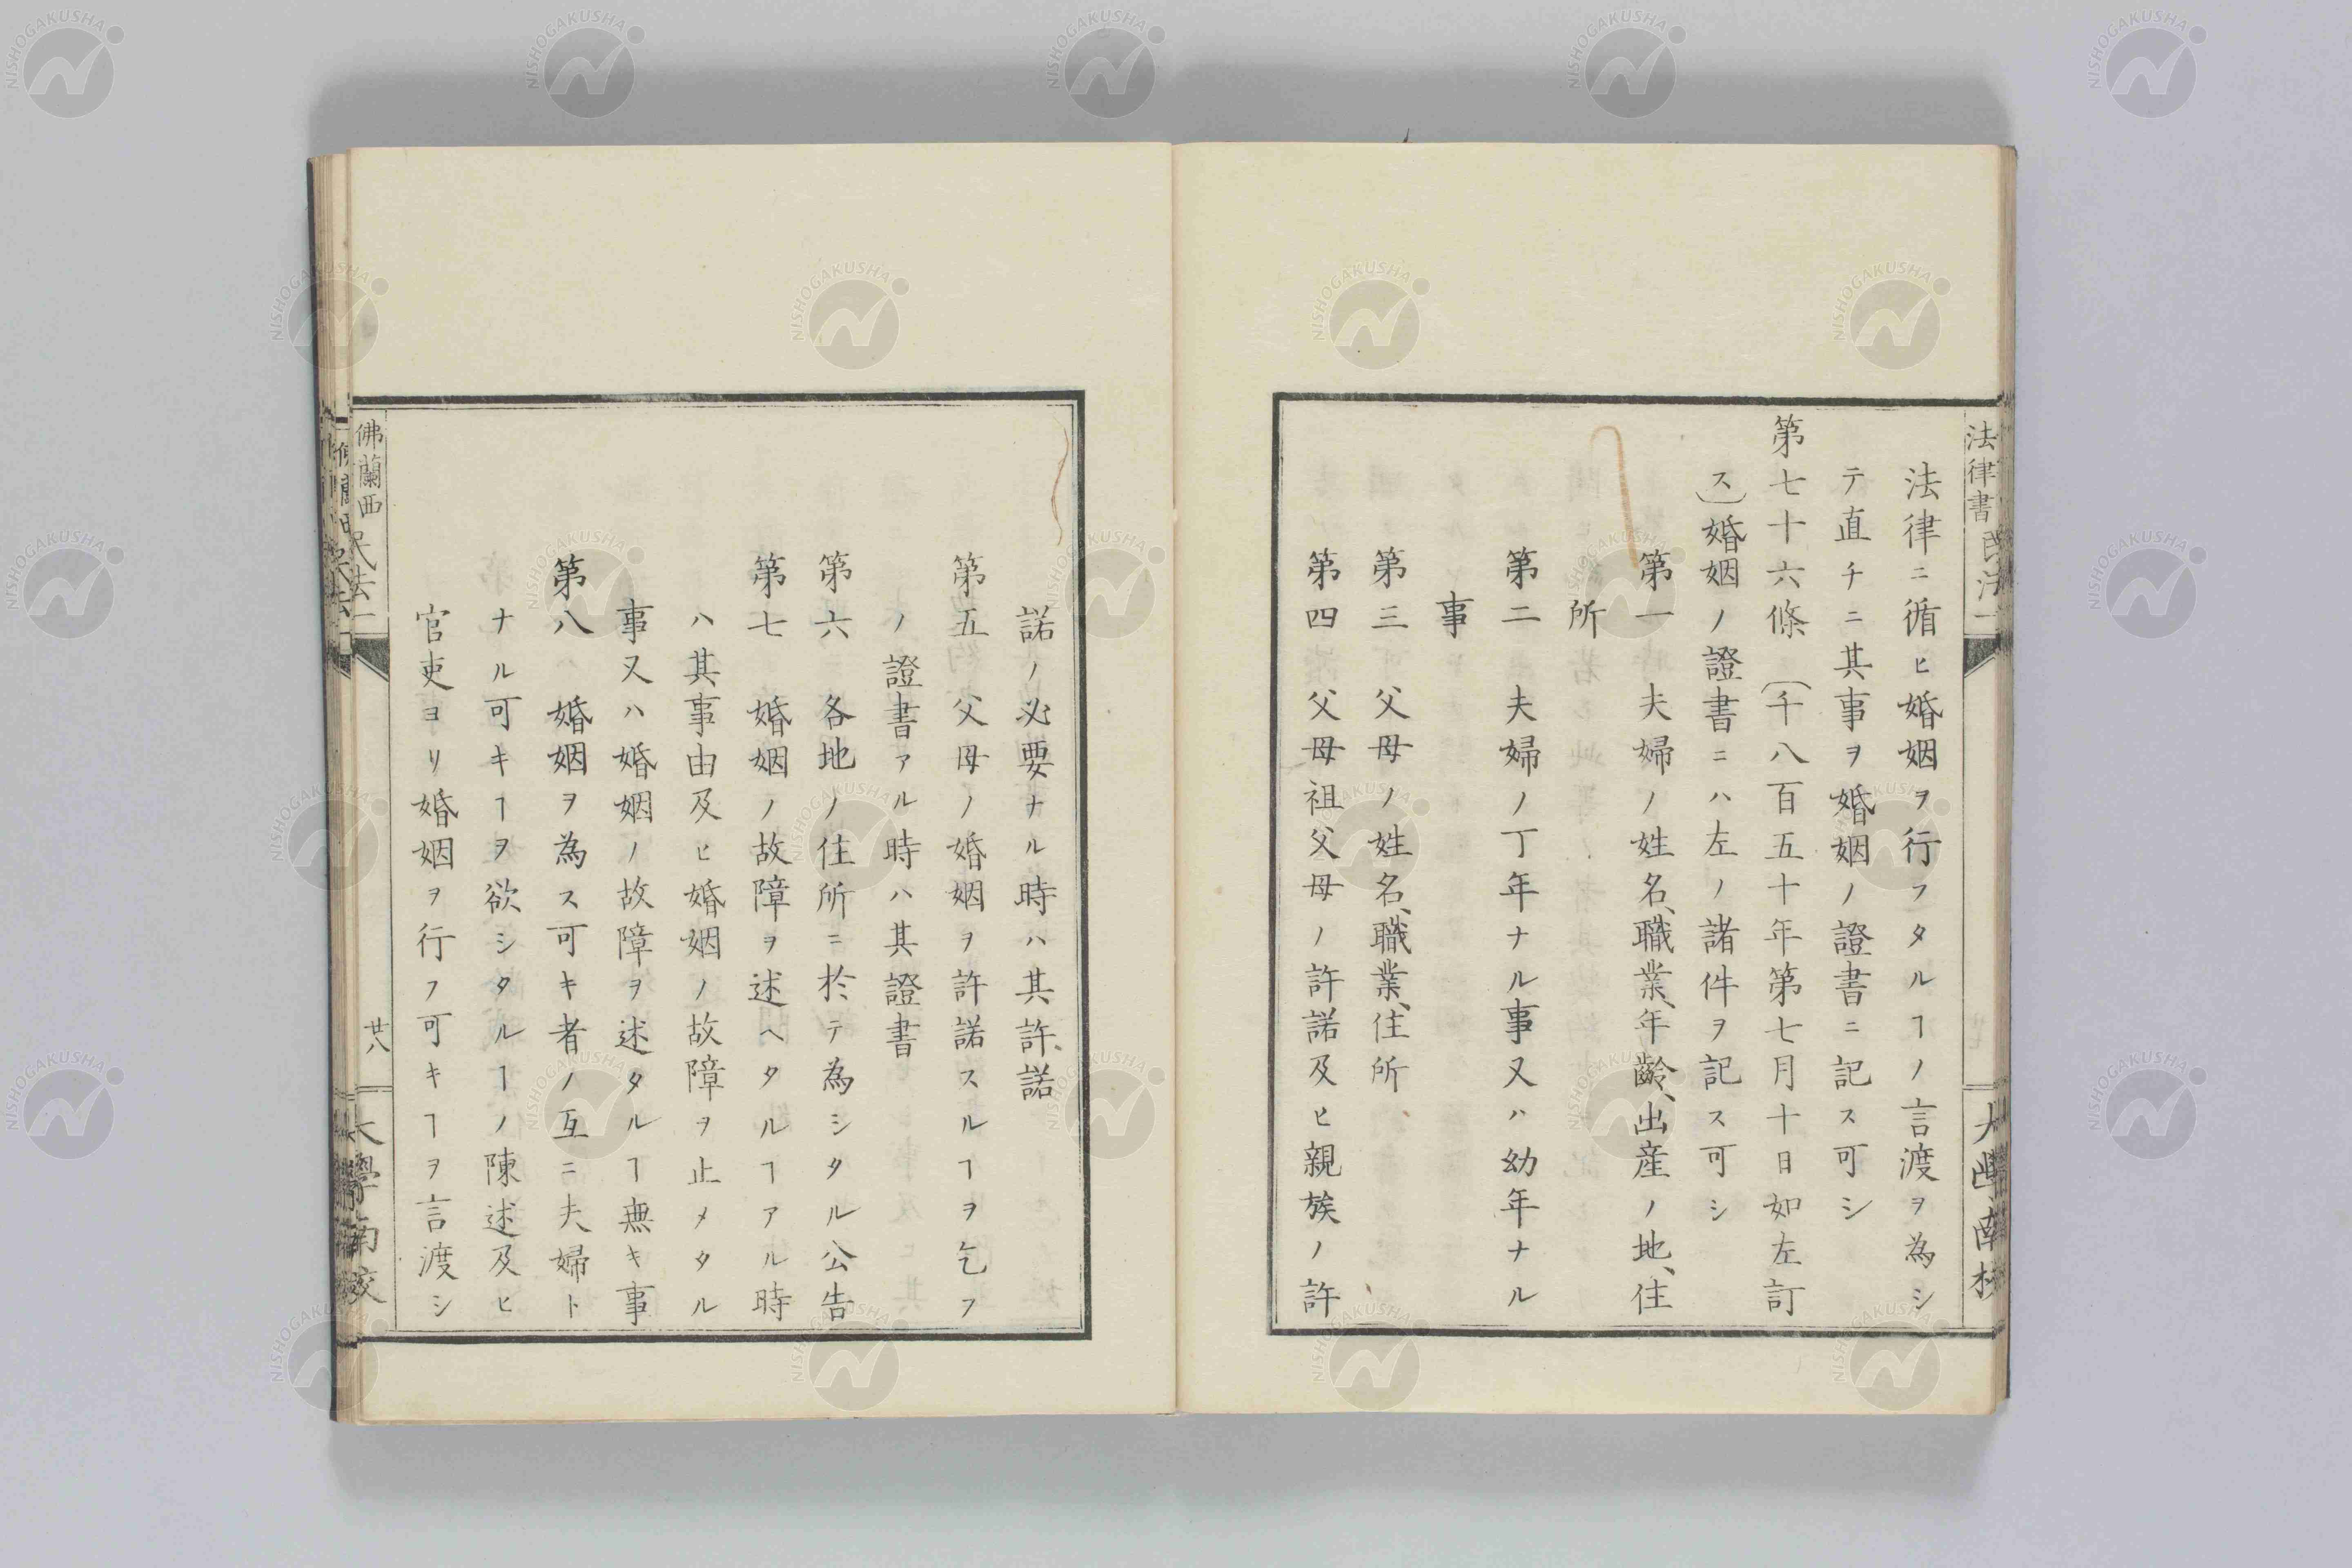 法律書 民法一
大學南校
法律ニ循ヒ婚姻ヲ行フタルヿノ言渡ヲ為シ
テ直チニ其事ヲ婚姻ノ證書ニ記ス可シ
第七十六條(千八百五十年第七月十日如左訂
ス)婚姻ノ證書ニハ左ノ諸件ヲ記ス可シ
第一 夫婦ノ姓名、職業、年齡、出産ノ地、住
所
第二 夫婦ノ丁年ナル事又ハ幼年ナル
事
第三 父母ノ姓名、職業、住所
第四 父母祖父母ノ許諾及ヒ親族ノ許
諾ノ必要ナル時ハ其許諾
第五 父母ノ婚姻ヲ許諾スルヿヲ乞フ
ノ證書アル時ハ其證書
第六 各地ノ住所ニ於テ為シタル公告
第七 婚姻ノ故障ヲ述ヘタルヿアル時
ハ其事由及ヒ婚姻ノ故障ヲ止メタル
事又ハ婚姻ノ故障ヲ述タルヿ無キ事
第八 婚姻ヲ為ス可キ者ノ互ニ夫婦ト
ナル可キヿヲ欲シタルヿノ陳述及ヒ
官吏ヨリ婚姻ヲ行フ可キヿヲ言渡シ
佛蘭西民法一
廿八
大學南校
NISHOGAKUSHA